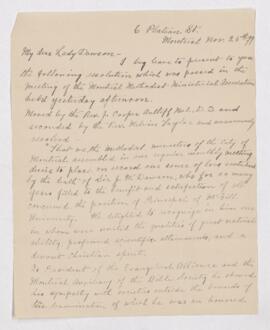 6 Plateau St.
Montreal Nov. 25th 99
My dear Lady Dawson -
I beg leave to present to you
the following resolution which was passed in the
meeting of the Montreal Methodist Ministerial Association
held yesterday afternoon.
Moved by the Rev. J. Cooper Antliff M.A. D.D and
seconded by the Rev. Melvin Taylor and unanimously
resolved
That we the Methodist ministers of the City of
Montreal assembled in our regular monthly meeting
desire to place on record our sense of loss sustained
by the death of Sir J. W. Dawson, who for so many
years filled to the benefit and satisfaction of all
concerned the position of Principal of McGill
University. We delighted to recognize in him one
in whom were united the qualities of great natural
ability, profound scientific attainments, and a
devout Christian spirit.
As President of the Evangelical Alliance and the
Montreal Auxiliary of the Bible Society he showed
his sympathy with societies outside the bounds of
the denomination of which he was an honored